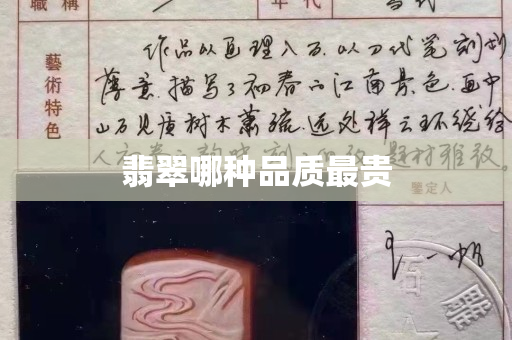 職稱
年代
藝術特色
作品以画理入石.以刀代笔刻划
薄意.描写了初春的江南景色.画中
山石见质树木萧疏.远处祥云环绕给
人
题材雅致.
翡翠哪种品质最贵
鉴定人